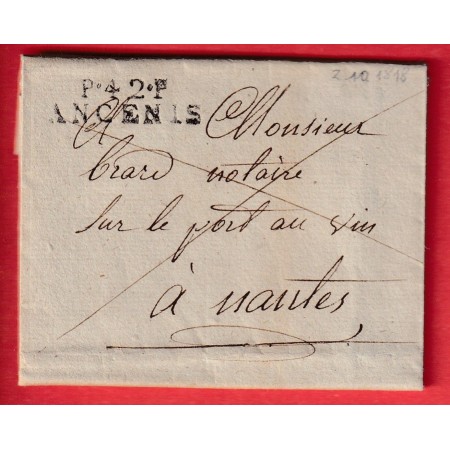 P.42.P
ANCENIS
A Monsieur
brard notaire
sur le port au vin
à nantes